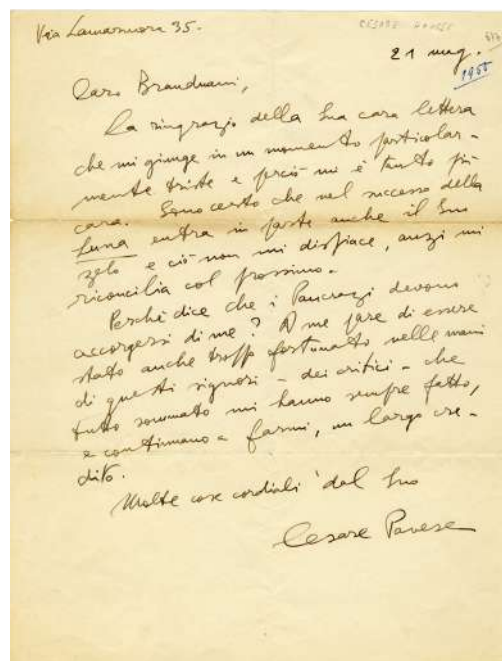 Via Lamarmora 35.
CESARE PAVESE
21 mag.
1950
Caro Branduani,
La ringrazio della Sua cara lettera
che mi giunge in un momento particolar-
mente triste e perciò mi è tanto più
cara. Sono certo che nel successo della
Luna entra in parte anche il Suo
zelo e ciò non mi dispiace, anzi mi
riconcilia col prossimo.
Perché dice che i Pancrazi devono
accorgersi di me? A me pare di essere
stato anche troppo fortunato nelle mani
di questi signori - dei critici - che
tutto sommato mi hanno sempre fatto,
e continuano a farmi, un largo cre-
dito.
Molte cose cordiali dal Suo
Cesare Pavese